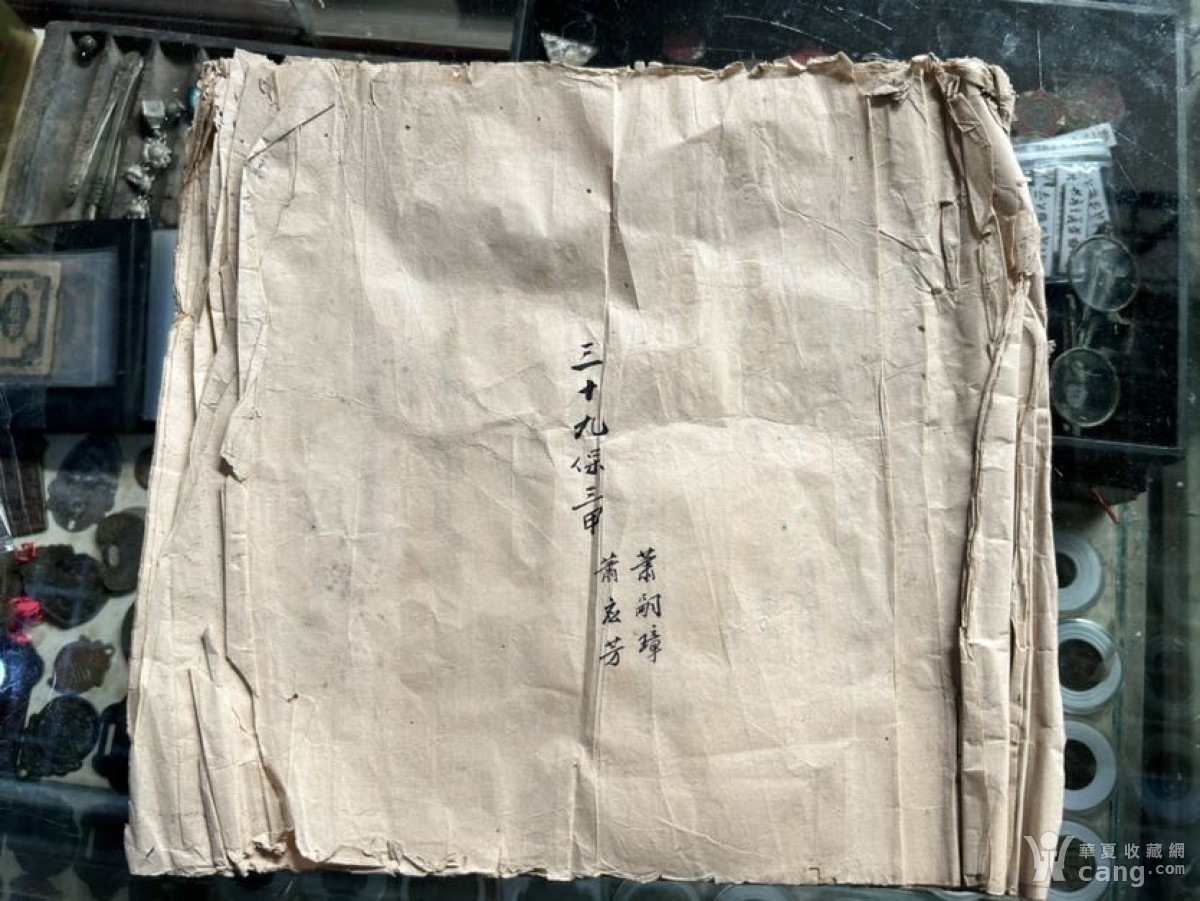 三十九保三甲
蕭嗣璋
蕭应芳
華夏收藏網
cang.com